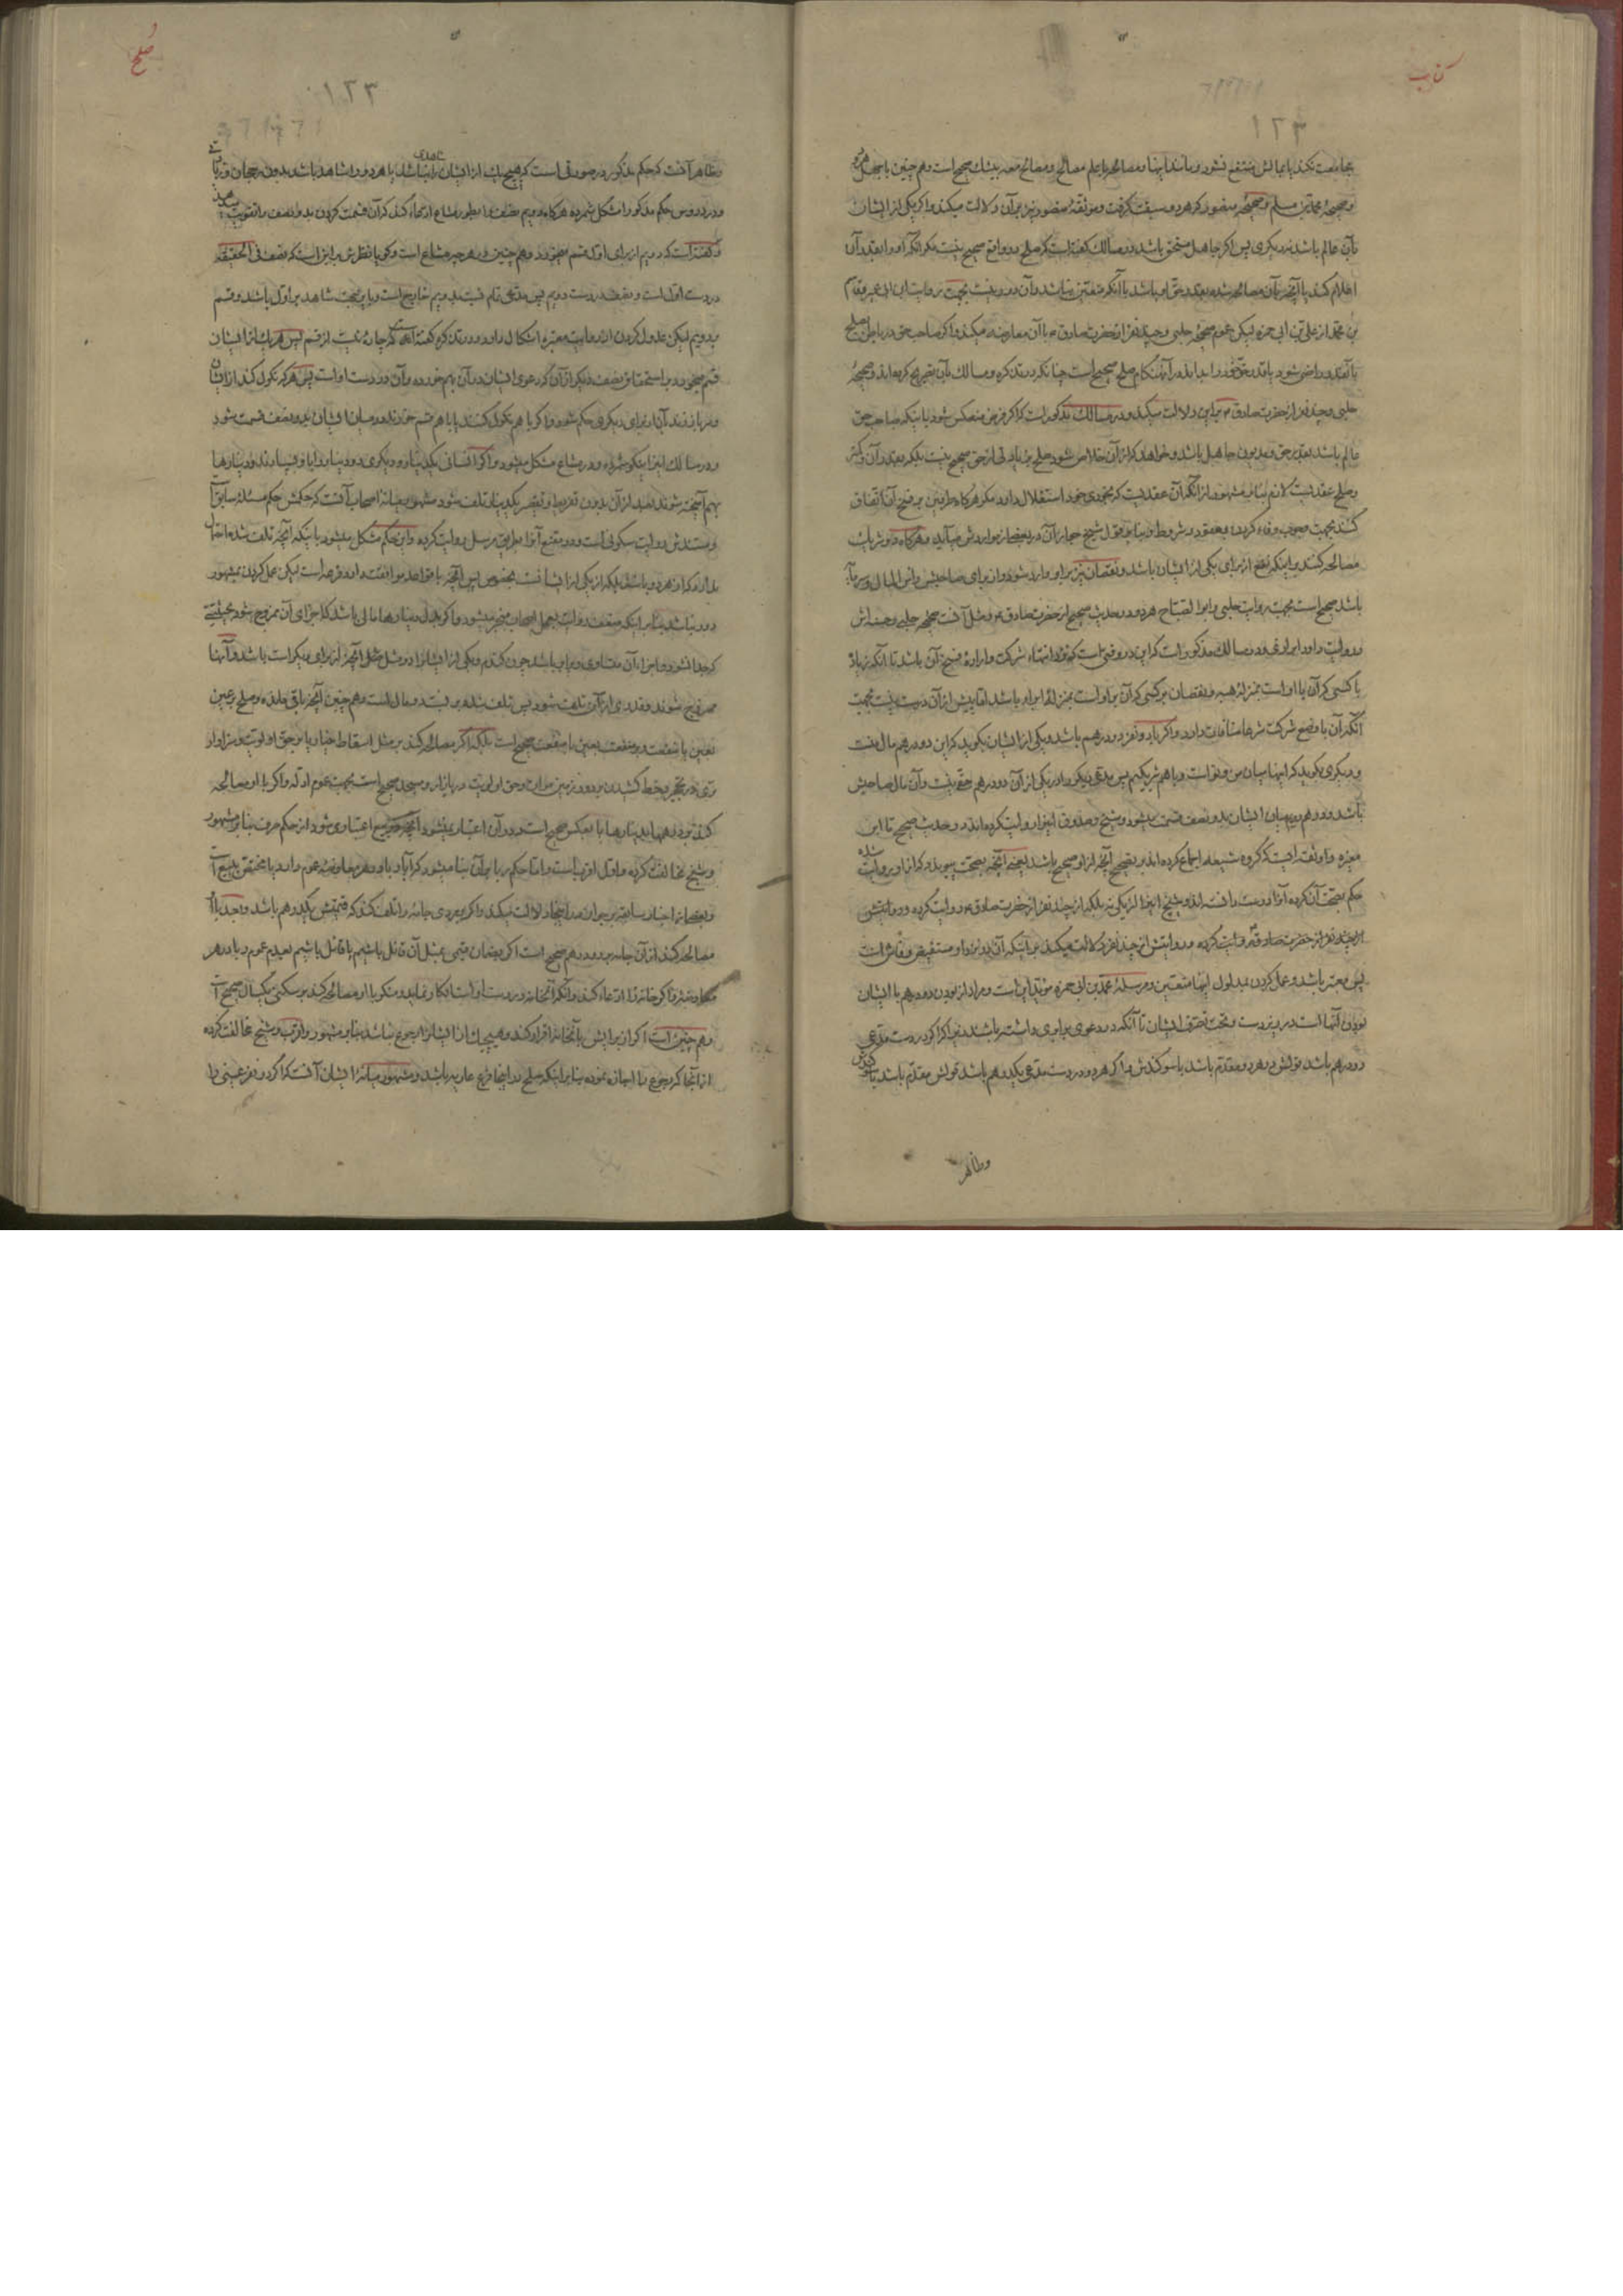 کتاب
۱۲۳
مجامعت نکند یا بمالش منتفع نشود و مانند اینها و مصالحه با علم مصالح و مصالح معه بیشک صحیح است و هم چنین با جهل هر دو
و صحیحهٔ محمد بن مسلم و صحیحهٔ منصور که هر دو سبقت گرفت و موثقهٔ منصور نیز بر آن دلالت میکند و اگر یکی از ایشان
بآن عالم باشد نه دیگری پس اگر جاهل مستحق باشد در مسالک گفته است که صلح در واقع صحیح نیست مگر آنکه او را بقدر آن
اعلام کند یا آنچه بآن مصالحه شده بقدر حق او باشد با آنکه متعین نباشد و آن دور نیست بجهت روایت ابن ابی عمیر
بن محمد از علی بن ابی حمزه لیکن عموم صحیحهٔ حلبی و چند نفر از حضرت صادق ع با آن معارضه میکند و اگر صاحب حق در باطن بصلح
بآنقدر راضی شود یا قدر حق خود را بداند در آن هنگام صلح صحیح است چنانکه در تذکره و مسالک بآن تصریح کرده‌اند و صحیحهٔ
حلبی و چند نفر از حضرت صادق ع بر این دلالت میکند و در مسالک مذکور است که اگر فرض منعکس شود باینکه صاحب حق
عالم باشد بقدر حق و مدیون جاهل باشد و خواهد که از آن خلاص شود صلح بزیادتی از حق صحیح نیست بلکه بقدر آن و کمتر
و صلح عقدیست لازم بنابر مشهور از آنکه آن عقدیست که بخودی خود استقلال دارد مگر هرگاه طرفین بر فسخ آن اتفاق
کنند بجهت وجوب وفاء کردن بعقود و شروط و بنابر قول شیخ جواز آن در بعضی از مواردش میآید و هرگاه دو شریک
مصالحه کنند بر اینکه نفع از برای یکی از ایشان باشد و نقصان نیز بر او وارد شود و از برای صاحبش راس المال
باشد صحیح است بجهت روایت حلبی و ابو الصباح هر دو در حدیث صحیح از حضرت صادق ع و مثل آنست صحیحهٔ حلبی و حسنه‌اش
و در مسالک مذکور است که این در وقتی است که نزد انتهاء شرکت و ارادهٔ فسخ آن باشد تا آنکه زیاد
با کسی که آن با او است بمنزلهٔ هبه و نقصان بر کسی که آن بر او است بمنزلهٔ ابراء باشد اما پیش از آن درست نیست بجهت
آنکه آن با وضع شرکت شرعا منافات دارد و اگر با دو نفر دو درهم باشد و یکی از ایشان بگوید که این دو درهم مال منست
و دیگری بگوید که اینها میان من و تو است و با هم شریکیم پس مدعی دیگر را در یکی از آن دو درهم حقی نیست و آن مال صاحبش
باشد و درهم دویم میان ایشان بدو نصف قسمت میشود و شیخ و صدوق اینرا روایت کرده‌اند در حدیث صحیح تا ابن
مغیره و او ثقه ایست که گروه شیعه اجماع کرده‌اند بر تصحیح آنچه از او صحیح باشد یعنی آنچه بصحت پیوندد که از او روایت شده
حکم بصحت آن کرده آنرا درست دانسته‌اند و شیخ اینرا از یکی نه بلکه از چند نفر از حضرت صادق ع روایت کرده و روایتش
از چند نفر از حضرت صادق ع روایت کرده و روایتش از چند نفر دلالت میکند بر اینکه آن نزد او مستفیض و فاش است
پس معتبر باشد و عمل کردن بمدلول اینها متعین و مرسلهٔ محمد بن ابی حمزه مؤید این است و مراد از بودن دو درهم با ایشان
بودن آنها است در زیر دست و تحت تصرف ایشان تا آنکه در دعوی برابری داشته باشند زیرا که اگر در دست مدعی
دو درهم باشد قولش در هر دو مقدم باشد با سوگندش و اگر هر دو در دست مدعی یکدرهم باشد قولش مقدم باشد با سوگندش
وظاهر
صلح
۱۲۳
وظاهر آنست که حکم مذکور در صورتی است که هیچ یک از ایشان را شاهدی نباشد یا هر دو را شاهد باشد بدون رجحان
و در دروس حکم مذکور را مشکل شمرده هرگاه دویم نصف را بطور مشاع ادعاء کند که آن قسمت کردن بدو نصف را تقویت
و گفته است که دویم از برای اول قسم میخورد و هم چنین در هر چیز مشاع است و گویا نظرش بر این است که نصف فی الحقیقه
در دست اول است و نصف در دست دویم پس مدعی تمام نسبت بدویم خارج است
بدویم لیکن عدول کردن از روایت معتبره اشکال دارد و در تذکره گفته است که چاره نیست از قسم پس هر یک از ایشان
قسم میخورد بر استحقاق نصف دیگر از آن که دعوی ایشان در آن بهم خورده و آن در دست او است پس هرکه نکول کند از ایشان
و سر باز زند آن از برای دیگری حکم شود و اگر با هم نکول کنند یا با هم قسم خورند در میان ایشان بدو نصف قسمت شود
و در مسالک اینرا نیکو شمرده و در مشاع مشکل میشود و اگر انسانی یکدینار و دیگری دو دینار را بامانت بسپارند و دینارها
بهم آمیخته شوند بعد از آن بدون تفریط و تقصیر یکدینار تلف شود مشهور میانهٔ اصحاب آنست که حکمش حکم مسئلهٔ سابق است
و مستندش روایت سکونی است و در مقنع آنرا بطریق مرسل روایت کرده و این حکم مشکل میشود باینکه آنچه تلف شده احتمال
ندارد که از هر دو باشد بلکه از یکی از ایشانست بخصوص پس آنچه با قواعد موافقت دارد قرعه است لیکن عمل کردن بمشهور
دور نباشد بنابر اینکه ضعف روایت بعمل اصحاب منجبر میشود و اگر بدل دینارها مالی باشد که اجزای آن ممزوج شود بحیثیتی
که جدا نشود و اجزاء آن متساوی و برابر باشد چون گندم و یکی از ایشانرا دو مثل آنچه از برای دیگر است باشد و آنها
ممزوج شوند و قدری از آن تلف شود پس تلف شده بر نسبت دو مال است و هم چنین آنچه باقی مانده و صلح بر عین
بعین یا بمنفعت و بر منفعت بعین یا منفعت صحیح است بلکه اگر مصالحه کند بر مثل اسقاط خیار یا بر حق اولویت و سزاوار
تری در تحجیر و خط کشیدن بر دور زمین موات و حق اولویت در بازار و مسجد صحیح است بجهت عموم ادله و اگر با او مصالحه
کند بر درهمها بدینارها یا بعکس صحیح است و در آن اعتبار نمیشود آنچه در بیع اعتبار میشود از حکم صرف بنابر مشهور
و شیخ مخالفت کرده و اول اقوی است و اما حکم ربا بر آن بنا میشود که آیا ربا در هر معاوضه عموم دارد یا مختص ببیع است
و بعضی از اخبار سابقه بر جریان ربا در اینجا دلالت میکند و اگر بر مردی جامه را تلف کند که قیمتش یکدرهم باشد
مصالحه کند از آن جامه بر دو درهم صحیح است اگر بضمان قیمی بمثل آن قائل باشیم یا قائل باشیم بعدم عموم ربا در هر
معاوضه و اگر خانه را ادعاء کند و آنکه آنخانه در دست او است انکار نماید و منکر با او مصالحه کند بر سکنی یکسال صحیح است
و هم چنین است اگر از برایش بآنخانه اقرار کند و هیچ یک از ایشانرا رجوع نباشد بنابر مشهور و اقرب و شیخ مخالفت کرده
از آنجا که رجوع را اجازه نموده بنابر اینکه صلح در اینجا فرع عاریه باشد و مشهور میانهٔ ایشان آنست که اگر دو نفر عینی را